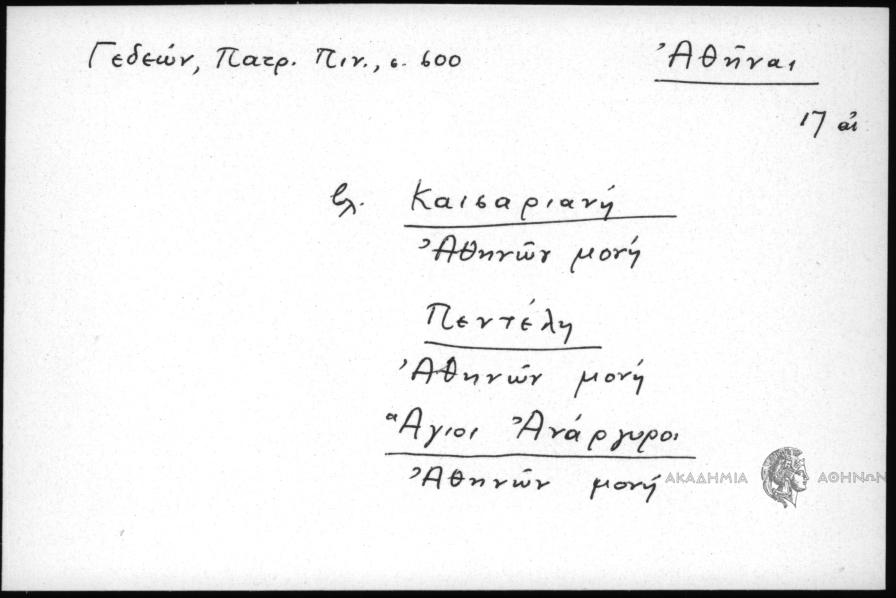 Γεδεών, Πατρ. Πιν., σ. 600
Ἀθῆναι
17 αἰ
βλ. Καισαριανή
Ἀθηνῶν μονή
Πεντέλη
Ἀθηνῶν μονή
Ἅγιοι Ἀνάργυροι
Ἀθηνῶν μονή
ΑΚΑΔΗΜΙΑ ΑΘΗΝΩΝ